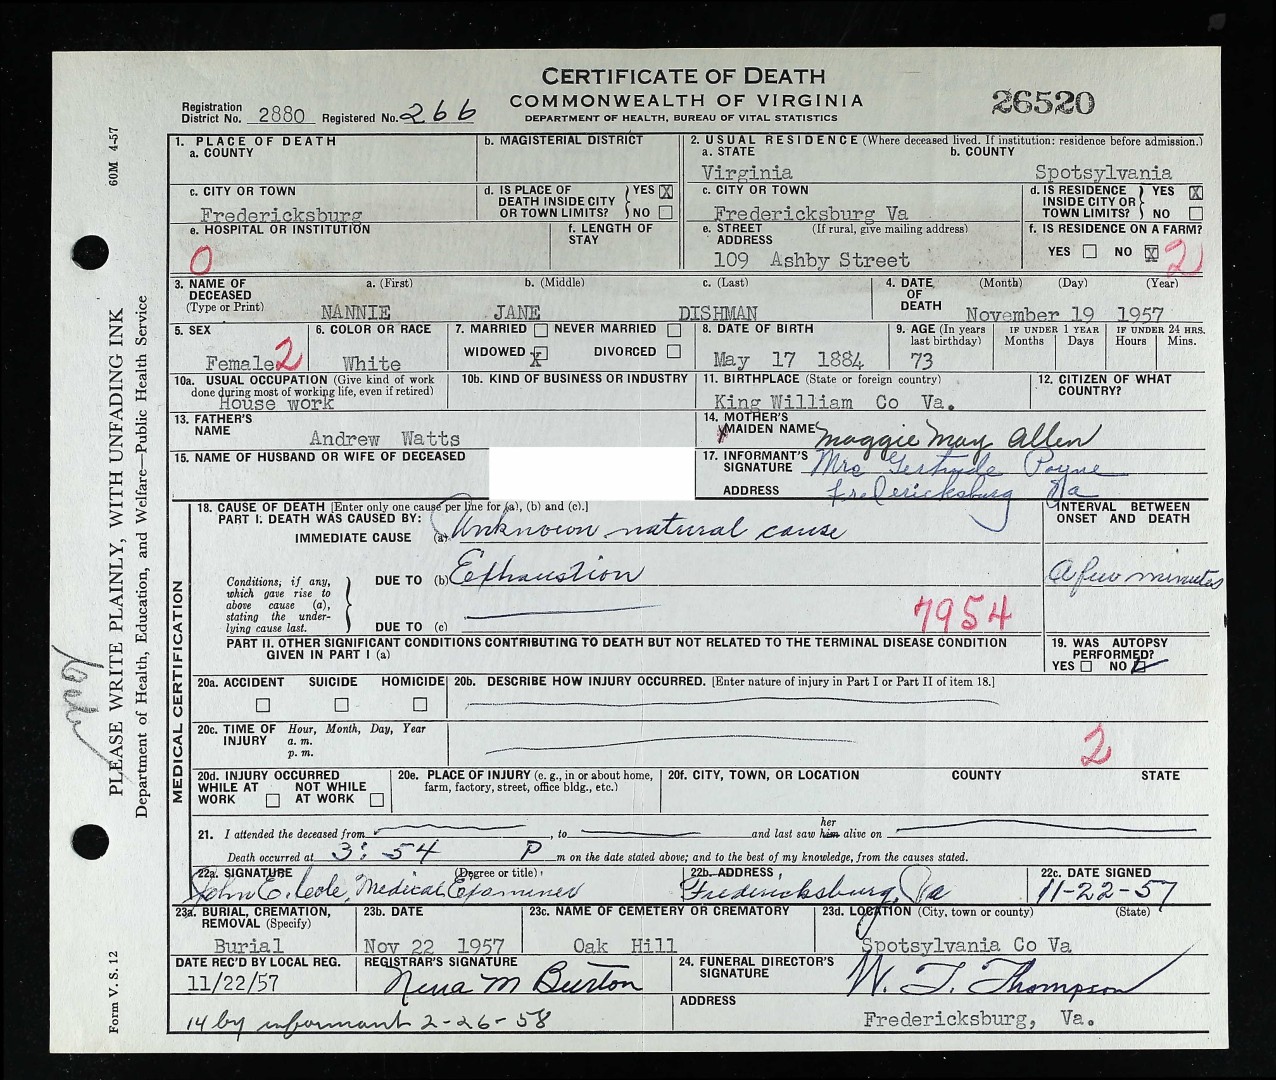 CERTIFICATE OF DEATH
COMMONWEALTH OF VIRGINIA
DEPARTMENT OF HEALTH, BUREAU OF VITAL STATISTICS
26520
Registration District No. 2880 Registered No. 266
1. PLACE OF DEATH
a. COUNTY
b. MAGISTERIAL DISTRICT
2. USUAL RESIDENCE (Where deceased lived. If institution: residence before admission.)
a. STATE b. COUNTY
Virginia Spotsylvania
c. CITY OR TOWN
Fredericksburg
d. IS PLACE OF DEATH INSIDE CITY OR TOWN LIMITS? YES X NO
c. CITY OR TOWN
Fredericksburg Va
d. IS RESIDENCE INSIDE CITY OR TOWN LIMITS? YES X NO
e. HOSPITAL OR INSTITUTION
0
f. LENGTH OF STAY
e. STREET ADDRESS (If rural, give mailing address)
109 Ashby Street
f. IS RESIDENCE ON A FARM?
YES NO X 2
3. NAME OF DECEASED (Type or Print)
a. (First) b. (Middle) c. (Last)
NANNIE JANE DISHMAN
4. DATE OF DEATH (Month) (Day) (Year)
November 19 1957
5. SEX
Female 2
6. COLOR OR RACE
White
7. MARRIED NEVER MARRIED
WIDOWED X DIVORCED
8. DATE OF BIRTH
May 17 1884
9. AGE (In years last birthday)
73
IF UNDER 1 YEAR Months Days
IF UNDER 24 HRS. Hours Mins.
10a. USUAL OCCUPATION (Give kind of work done during most of working life, even if retired)
House work
10b. KIND OF BUSINESS OR INDUSTRY
11. BIRTHPLACE (State or foreign country)
King William Co Va.
12. CITIZEN OF WHAT COUNTRY?
13. FATHER'S NAME
Andrew Watts
14. MOTHER'S MAIDEN NAME
Maggie May Allen
15. NAME OF HUSBAND OR WIFE OF DECEASED
17. INFORMANT'S SIGNATURE Mrs Gertrude Payne
ADDRESS Fredericksburg Va
18. CAUSE OF DEATH [Enter only one cause per line for (a), (b) and (c).]
PART I. DEATH WAS CAUSED BY:
IMMEDIATE CAUSE (a) Unknown natural cause
INTERVAL BETWEEN ONSET AND DEATH
Conditions, if any, which gave rise to above cause (a), stating the underlying cause last.
DUE TO (b) Exhaustion
a few minutes
DUE TO (c)
7954
PART II. OTHER SIGNIFICANT CONDITIONS CONTRIBUTING TO DEATH BUT NOT RELATED TO THE TERMINAL DISEASE CONDITION GIVEN IN PART I (a)
19. WAS AUTOPSY PERFORMED?
YES NO
20a. ACCIDENT SUICIDE HOMICIDE
20b. DESCRIBE HOW INJURY OCCURRED. [Enter nature of injury in Part I or Part II of item 18.]
20c. TIME OF INJURY Hour, Month, Day, Year
a. m.
p. m.
2
20d. INJURY OCCURRED
WHILE AT WORK NOT WHILE AT WORK
20e. PLACE OF INJURY (e. g., in or about home, farm, factory, street, office bldg., etc.)
20f. CITY, TOWN, OR LOCATION COUNTY STATE
21. I attended the deceased from , to and last saw him her alive on
Death occurred at 3:54 P m on the date stated above; and to the best of my knowledge, from the causes stated.
22a. SIGNATURE (Degree or title)
John E. Cole, Medical Examiner
22b. ADDRESS
Fredericksburg, Va
22c. DATE SIGNED
11-22-57
23a. BURIAL, CREMATION, REMOVAL (Specify)
Burial
23b. DATE
Nov 22 1957
23c. NAME OF CEMETERY OR CREMATORY
Oak Hill
23d. LOCATION (City, town or county) (State)
Spotsylvania Co Va
DATE REC'D BY LOCAL REG.
11/22/57
REGISTRAR'S SIGNATURE
Nena M Burton
24. FUNERAL DIRECTOR'S SIGNATURE
W. T. Thompson
ADDRESS
Fredericksburg, Va.
14 by informant 2-26-58
60M 4-57
PLEASE WRITE PLAINLY, WITH UNFADING INK
Department of Health, Education, and Welfare—Public Health Service
MEDICAL CERTIFICATION
Form V. S. 12